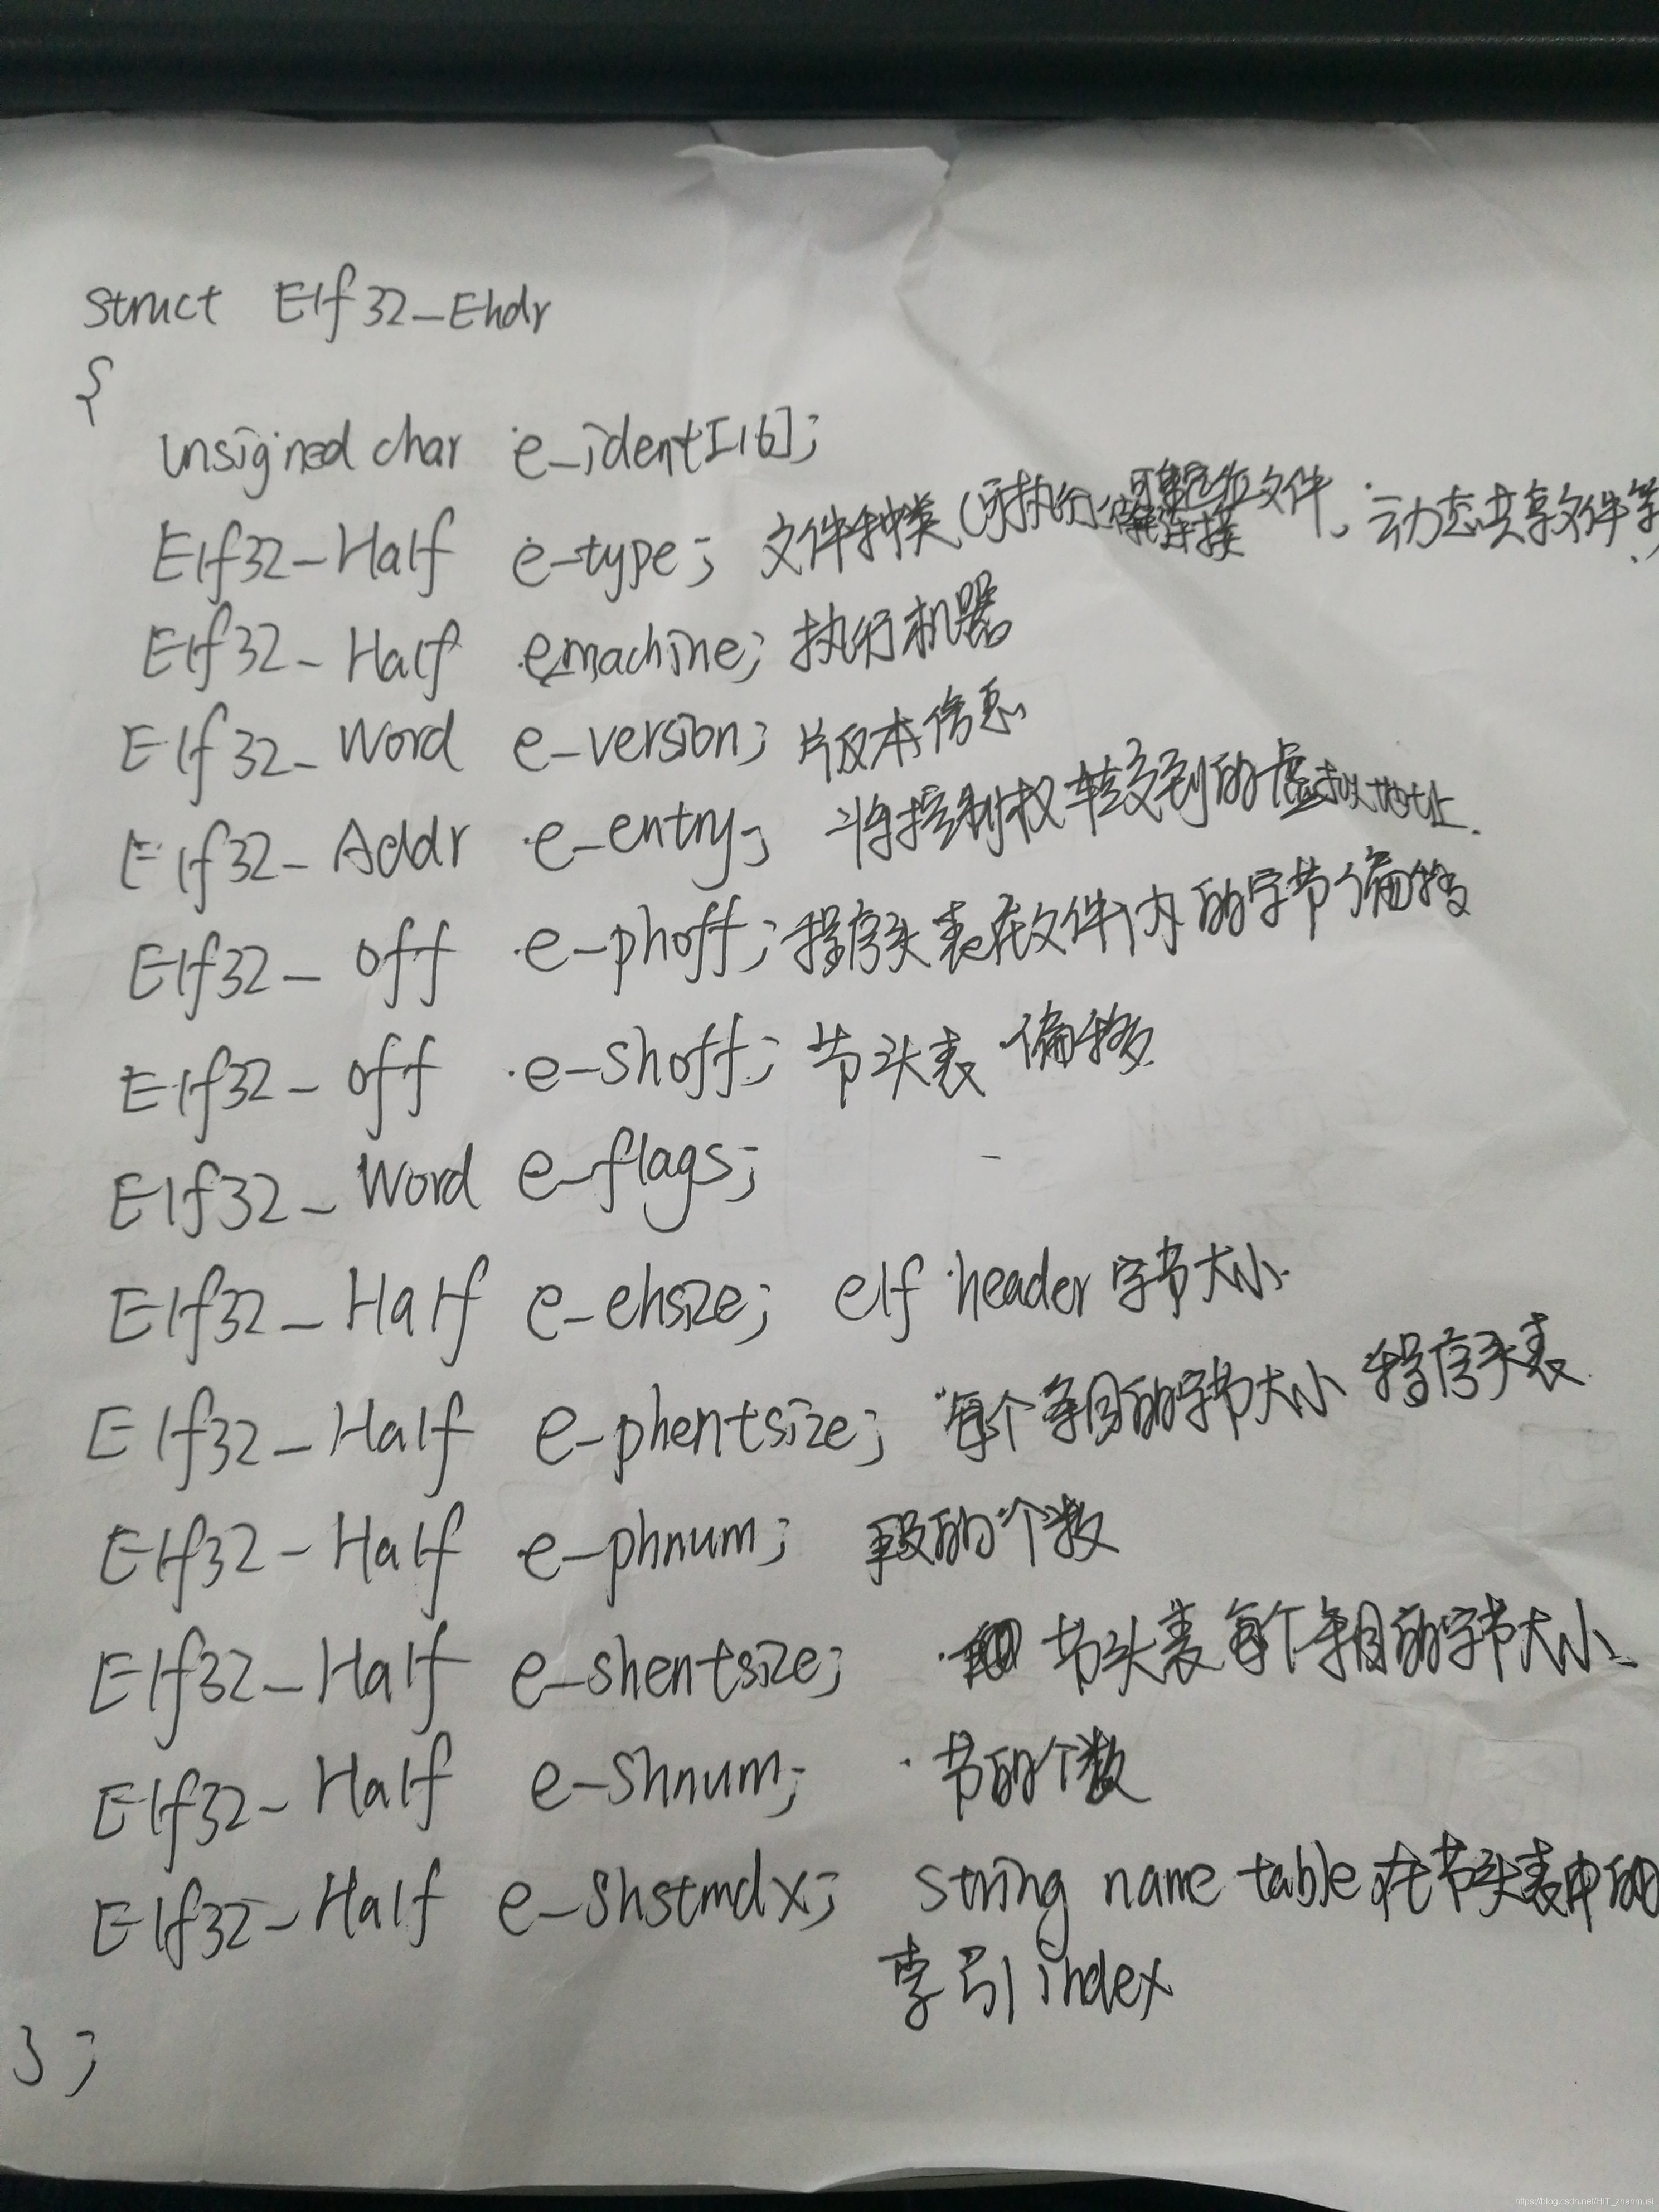 struct Elf32_Ehdr
{
unsigned char e_ident[16];
Elf32_Half e_type; 文件种类(可执行、可重定位文件、动态共享文件等
连接
Elf32_Half e_machine; 执行机器
Elf32_Word e_version; 版本信息
Elf32_Addr e_entry; 将控制权转交到的虚拟地址.
Elf32_off e_phoff; 程序头表在文件内的字节偏移
Elf32_off e_shoff; 节头表偏移
Elf32_Word e_flags;
Elf32_Half e_ehsize; elf header 字节大小.
Elf32_Half e_phentsize; 每个条目的字节大小 程序头表
Elf32_Half e_phnum; 段的个数
Elf32_Half e_shentsize; 节头表每个条目的字节大小
Elf32_Half e_shnum; 节的个数
Elf32_Half e_shstrndx; string name table 在节头表中的
索引 index
};
https://blog.csdn.net/HIT_zhanmusi